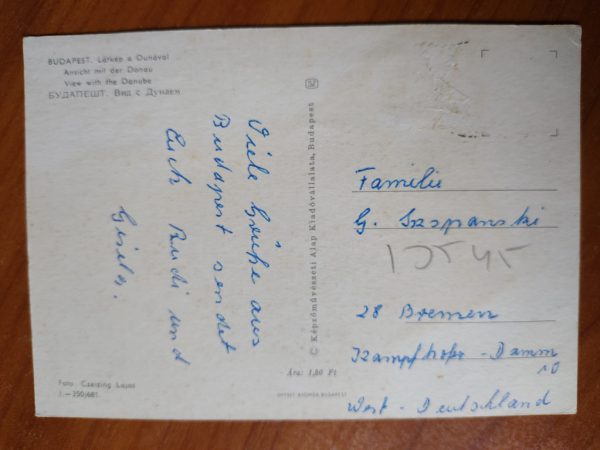 BUDAPEST. Látkép a Dunával
Ansicht mit der Donau
View with the Danube
БУДАПЕШТ. Вид с Дунаем
Viele Grüße aus
Budapest sendet
Euch Rudi und
Gisela.
Foto: Czeizing Lajos
© Képzőművészeti Alap Kiadóvállalata, Budapest
Ára: 1,80 Ft
OFFSET BUDAPEST
Familie
G. Szspanski
28 Bremen
Kampfhofer-Damm
10
West-Deutschland